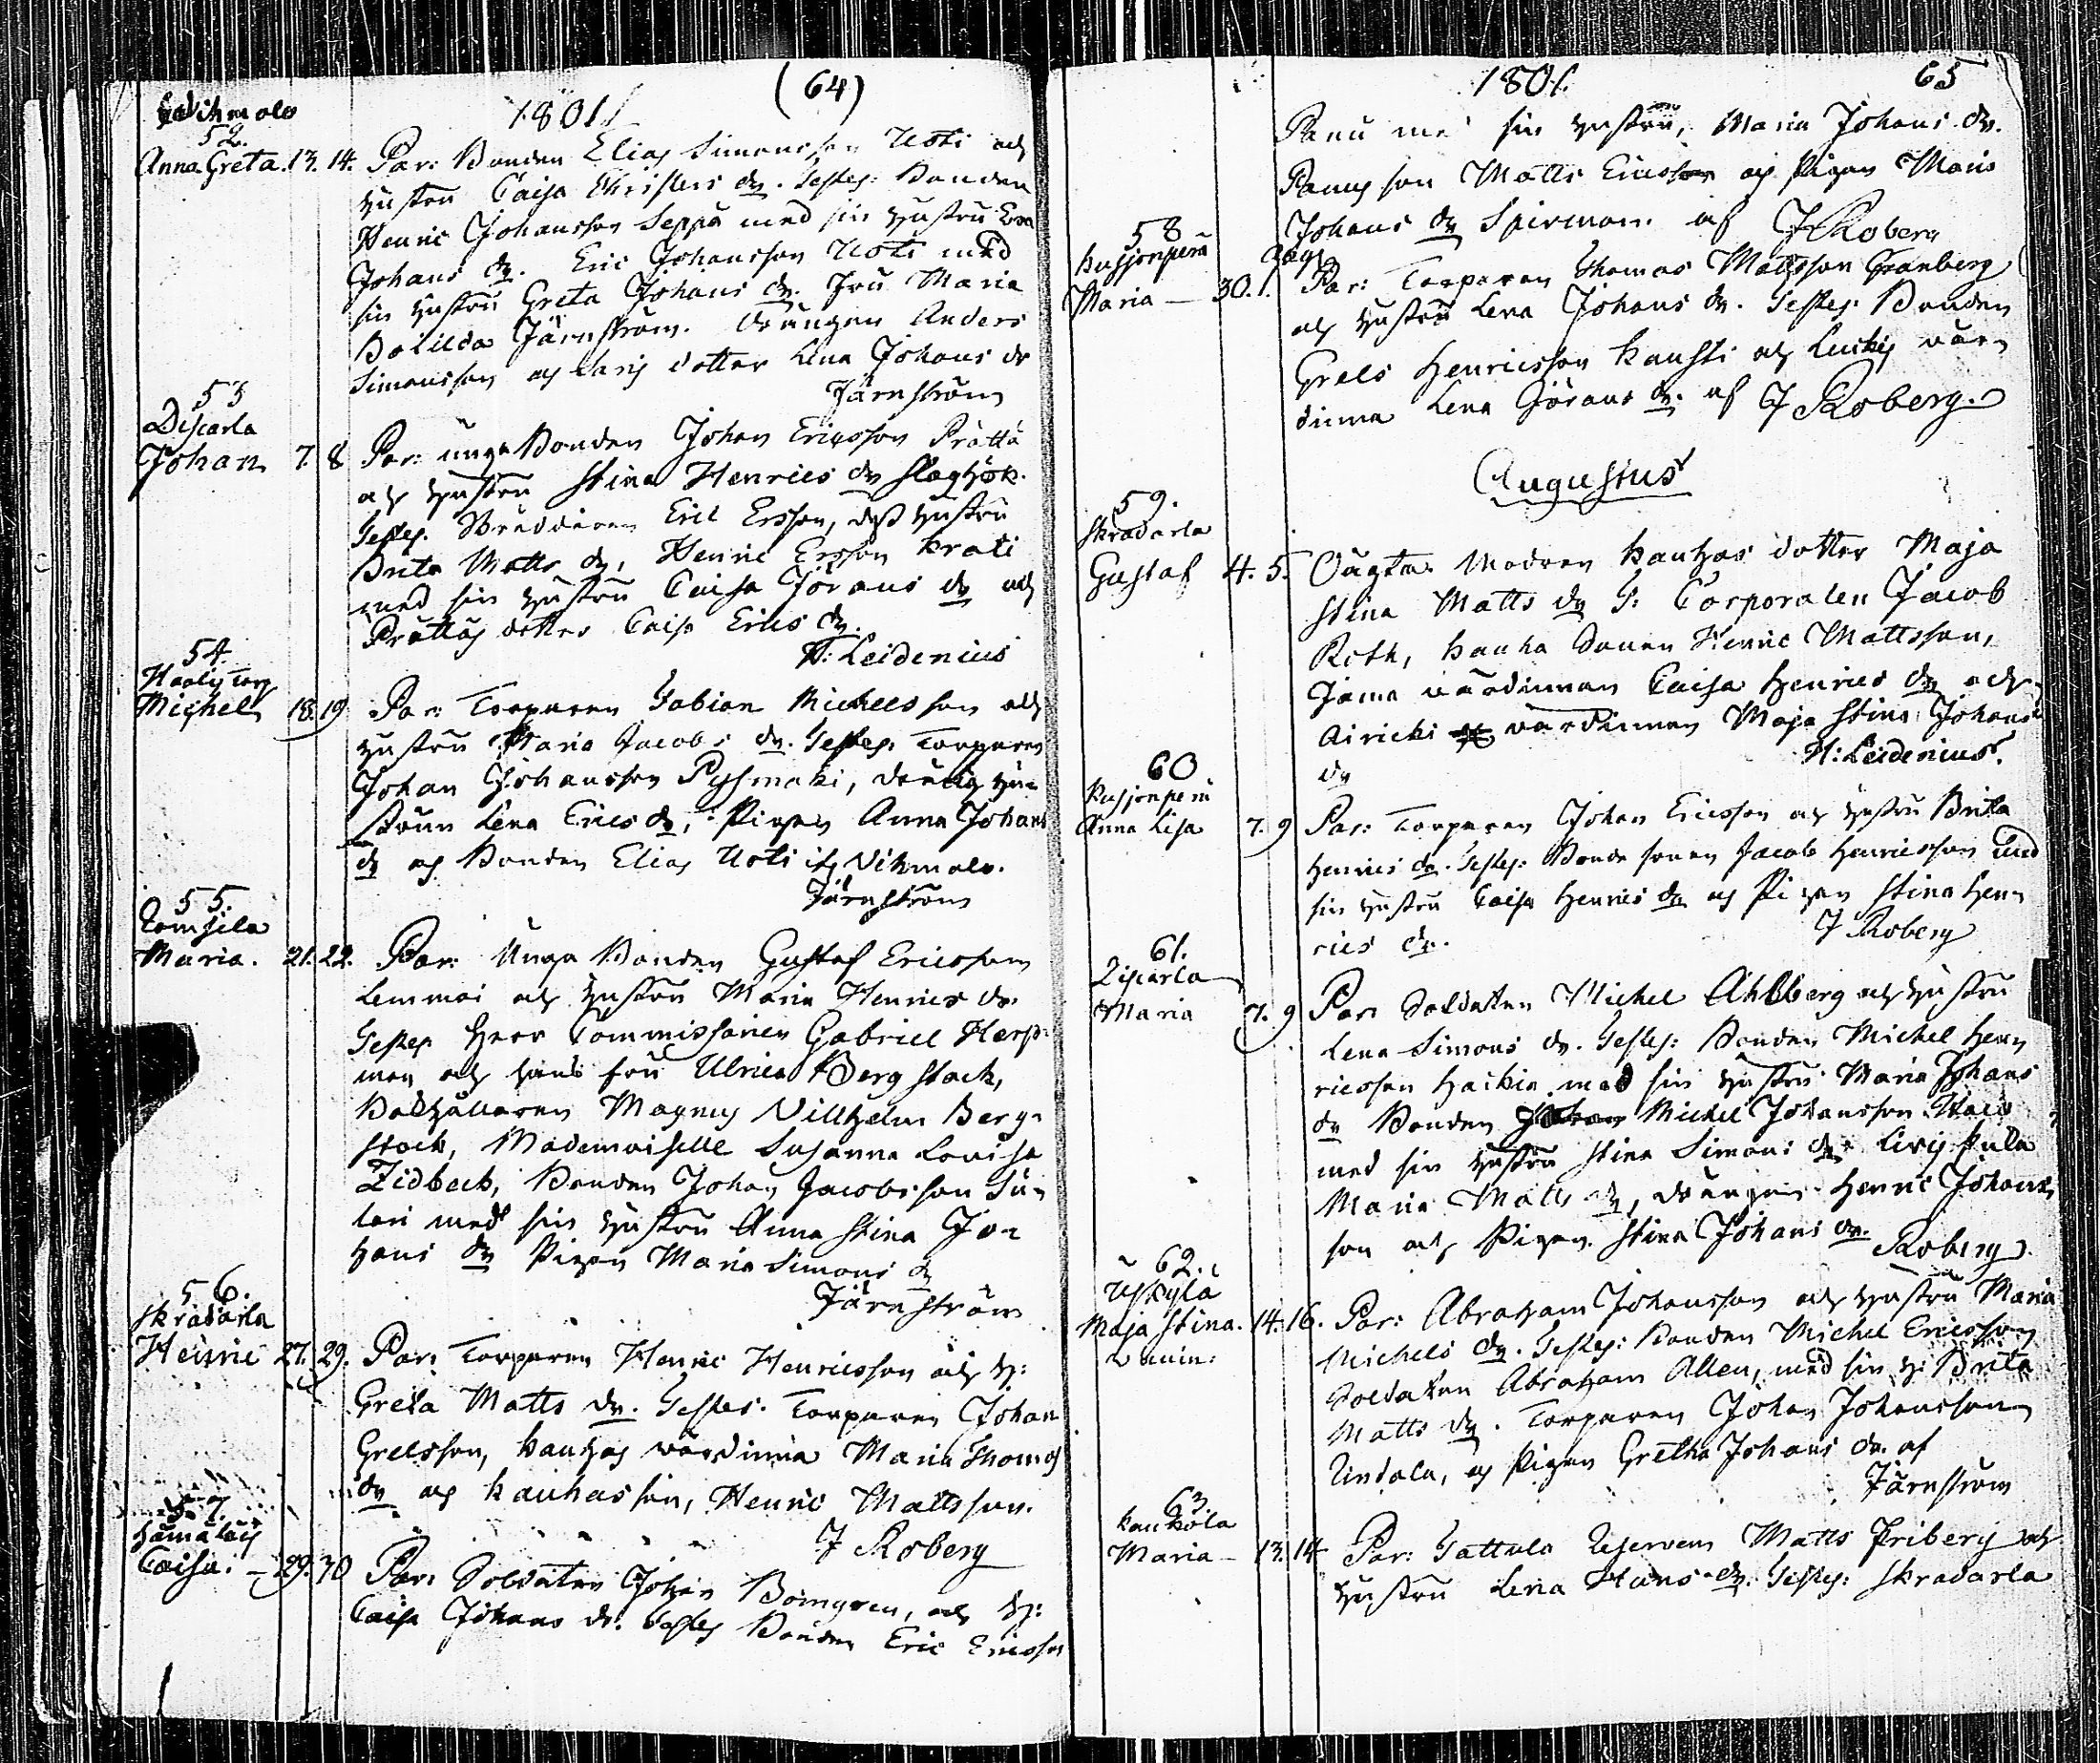 (64)
1801
Wihmalo
52.
Anna Greta. 13. 14. Par: Bonden Elias Simonsson Uoti och
hustru Caisa Christers dr. Testes: Bonden
Henric Johansson Seppä med sin hustru Eva
Johans dr. Eric Johansson Uoti med
sin hustru Greta Johans dr. Fru Maria
Järnström. drängen Anders
Simonsson och dotter Lena Johans dr
Järnström
53
Johan 7. 8 Par: unga Bonden Johan Ericsson Prättä
och hustru Stina Henrics dr Slaghök.
Testes. Eric Ersson, dess hustru
Brita Matts dr, Henric Ersson Krati
med sin hustru Caisa Jörans dr och
Prättäs dotter Caisa Erics dr.
H: Leidenius
54.
Torp
Michel 18. 19 Par: Torparen Fabian Michelsson och
hustru Maria Jacobs dr. Testes. Torparen
Johan Johansson Pysmäki, hu-
strun Lena Erics dr, Pigan Anna Johans
dr och Bonden Elias Uoti ifr. Vihmalo.
Järnström
55.
Tomsila
Maria. 21. 22. Par: Unga Bonden Gustaf Ericsson
Lemmoi och hustru Maria Henrics dr.
Testes Herr Commissarien Gabriel Herp-
man och hans fru Ulrica Bergstock,
Bokhållaren Magnus Villhelm Berg-
stock, Mademoiselle Susanna Lovisa
Zidbeck, Bonden Johan Jacobsson
med sin hustru Anna Stina Jo-
hans dr Pigan Maria Simons dr
Järnström
56.
Skradarla
Henric 27. 29. Par: Torparen Henric Henricsson och h:
Greta Matts dr. Testes. Torparen Johan
Grelsson, Kauhas värdinna Maria Thomas
dr och Kauhas son, Henric Mattsson.
J Roberg
57.
Caisa. 29. 30 Par: Soldaten Johan Bomgren, och h:
Caisa Johans dr. Testes Bonden Eric Ericsson
1801. 65
Panu med sin hustru, Maria Johans dr.
Panus son Matts Ericsson och Pigan Maria
Johans dr Spirman. af J Roberg
58
Kusjonperä Aug.
Maria 30. 1. Par: Torparen Thomas Mattsson Granberg
och hustru Lena Johans dr. Testes. Bonden
Grels Henricsson Kausti och värn
dinna Lena Görans dr. af J Roberg.
Augustus
59.
Skradarla
Gustaf 4. 5. Oägta Modren Kauhas dotter Maja
Stina Matts dr T: Corporalen Jacob
Roth, Kauha sonen Henric Mattsson,
Jama värdinnan Caisa Henrics dr och
Airicki värdinnan Maja Stina Johans
dr H: Leidenius.
60
Kusjonperä
Anna Lisa 7. 9 Par: Torparen Johan Ericsson och hustru Brita
Henrics dr. Testes: Bonde sonen Jacob Henricsson med
sin hustru Caisa Henrics dr och Pigan Stina Hen-
rics dr. J Roberg
61.
Maria 7. 9 Par: Soldaten Michel Ahlberg och hustru
Lena Simons dr. Testes: Bonden Michel Hen-
ricsson Haikia med sin hustru Maria Johans
dr Bonden Michel Johansson
med sin hustru Stina Simons dr
Maria Matts dr, drängen Henric Johans-
son och Pigan Stina Johans dr. Roberg
62.
Uskylä
Maja Stina. 14. 16. Par: Abraham Johansson och hustru Maria
Michels dr. Testes: Bonden Michel Ericsson
Soldaten Abraham Allen, med sin h: Brita
Matts dr. Torparen Johan Johansson
Undala, och Pigan Gretha Johans dr. af
Järnström
63.
Kaukola
Maria 13. 14 Par: Matts Friberg och
hustru Lena Hans dr. Testes: Skradarla